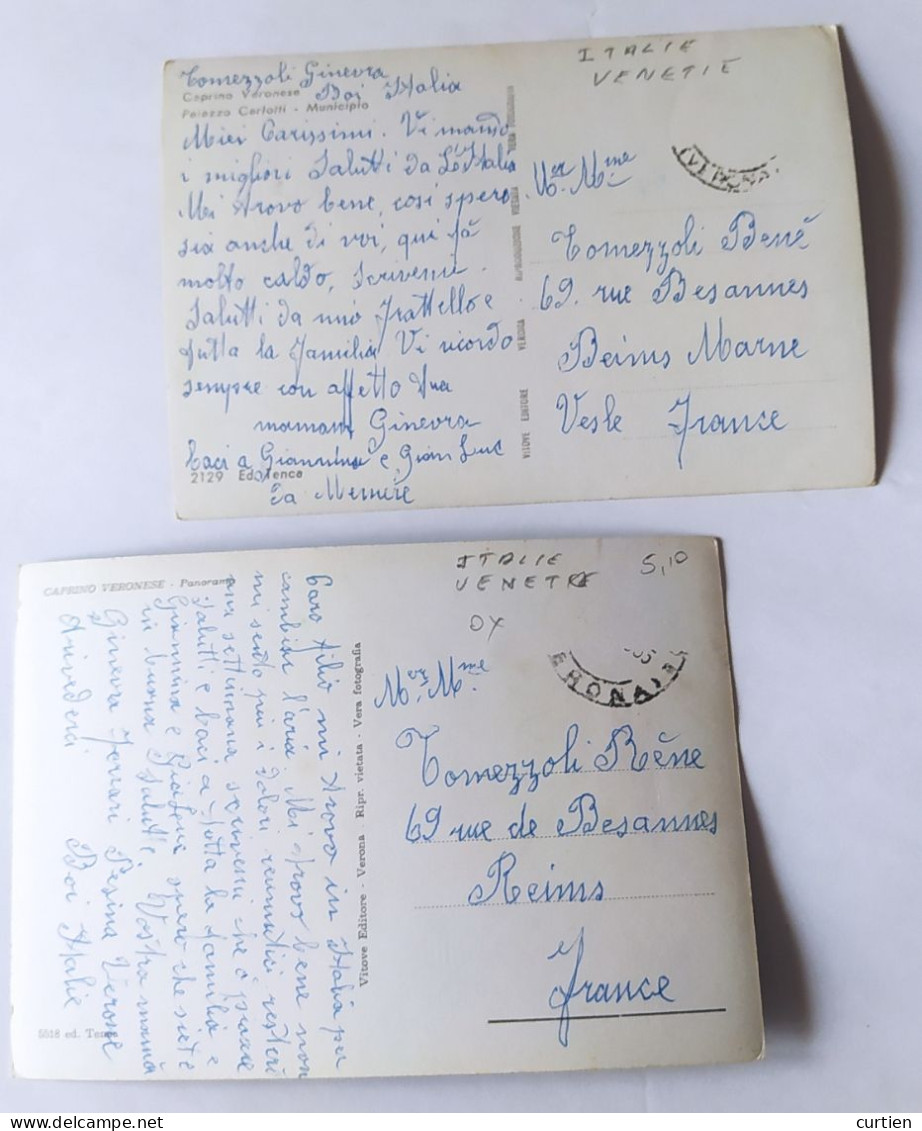 Tomezzoli Ginevra
Boi Italia
Caprino Veronese
Palazzo Carlotti - Municipio
Miei Carissimi. Vi mando
i migliori Salutti da L'Italia
Mei trovo bene, cosi spero
sia anche di voi, qui fà
molto caldo, Scrivemi
Salutti da mio Frattello e
tutta la Familia Vi ricordo
sempre con affetto
mamam Ginevra
Baci a Giannina e Gian Luc
La Memere
2129 Ed. Tenca
VITOVE EDITORE VERONA RIPRODUZIONE VIETATA VERA FOTOGRAFIA
ITALIE
VENETIE
(VERONA
Mer Mme
Tomezzoli Renè
69. rue Besannes
Reims Marne
Vesle France
CAPRINO VERONESE - Panorama
Caro Filio mi trovo in Italia per
cambier l'aria. Mei trovo bene non
mi sento piu i dolori reumatici resteri
settimana scrivemi che ò piacere
Salutti e baci a tutta la familia e
Giannina e spero che siete
in buona Salutte. Vostra mamà
Ginevra Ferrari Pesina Verone
Arivederci Boi Italie
5518 ed. Tenca
Vitove Editore - Verona Ripr. vietata - Vera fotografia
ITALIE
VENETIE
5,10
OX
ERONA
Mer Mme
Tomezzoli Rêne
69 rue de Besannes
Reims
France
curtien